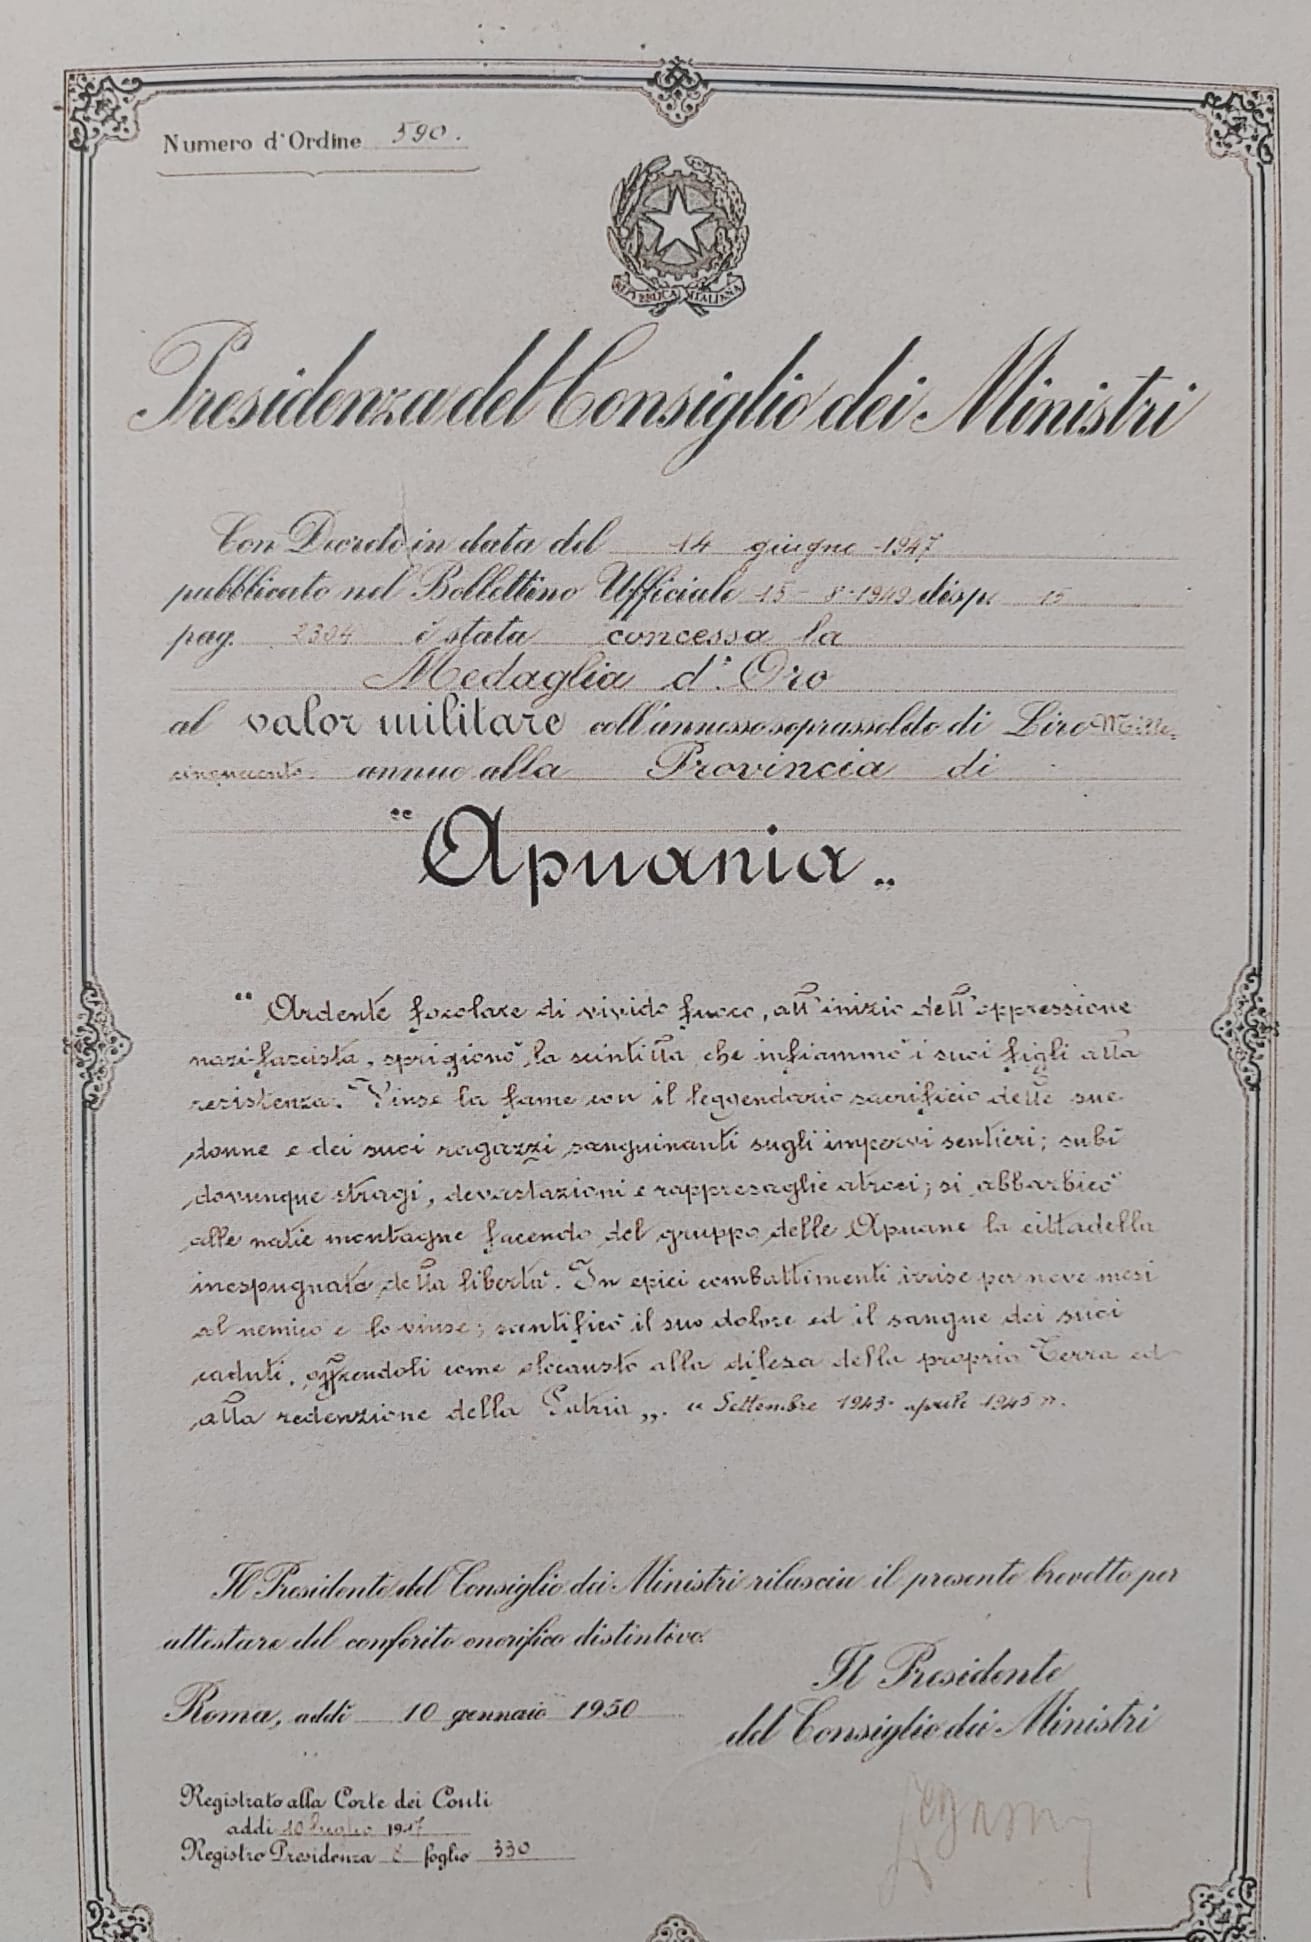 Numero d'Ordine 590.
REPVBBLICA ITALIANA
Presidenza del Consiglio dei Ministri
Con Decreto in data del 14 giugno 1947
pubblicato nel Bollettino Ufficiale 15-8-1949 disp. 15
pag. 2304 è stata concessa la
Medaglia d'Oro
al valor militare coll'annesso soprassoldo di Lire Mille
cinquecento annue alla Provincia di
"Apuania„
"Ardente focolare di vivido fuoco, all'inizio dell'oppressione
nazi-fascista, sprigionò la scintilla che infiammò i suoi figli alla
resistenza. Vinse la fame con il leggendario sacrificio delle sue
donne e dei suoi ragazzi sanguinanti sugli impervi sentieri; subì
dovunque stragi, devastazioni e rappresaglie atroci; si abbarbicò
alle natie montagne facendo del gruppo delle Apuane la cittadella
inespugnata della libertà. In epici combattimenti irrise per nove mesi
al nemico e lo vinse; santificò il suo dolore ed il sangue dei suoi
caduti, offrendoli come olocausto alla difesa della propria Terra ed
alla redenzione della Patria„. "Settembre 1943- aprile 1945".
Il Presidente del Consiglio dei Ministri rilascia il presente brevetto per
attestare del conferito onorifico distintivo.
Il Presidente
Roma, addì 10 gennaio 1950
del Consiglio dei Ministri
Registrato alla Corte dei Conti
addì 10 luglio 1947
Registro Presidenza 8 foglio 330